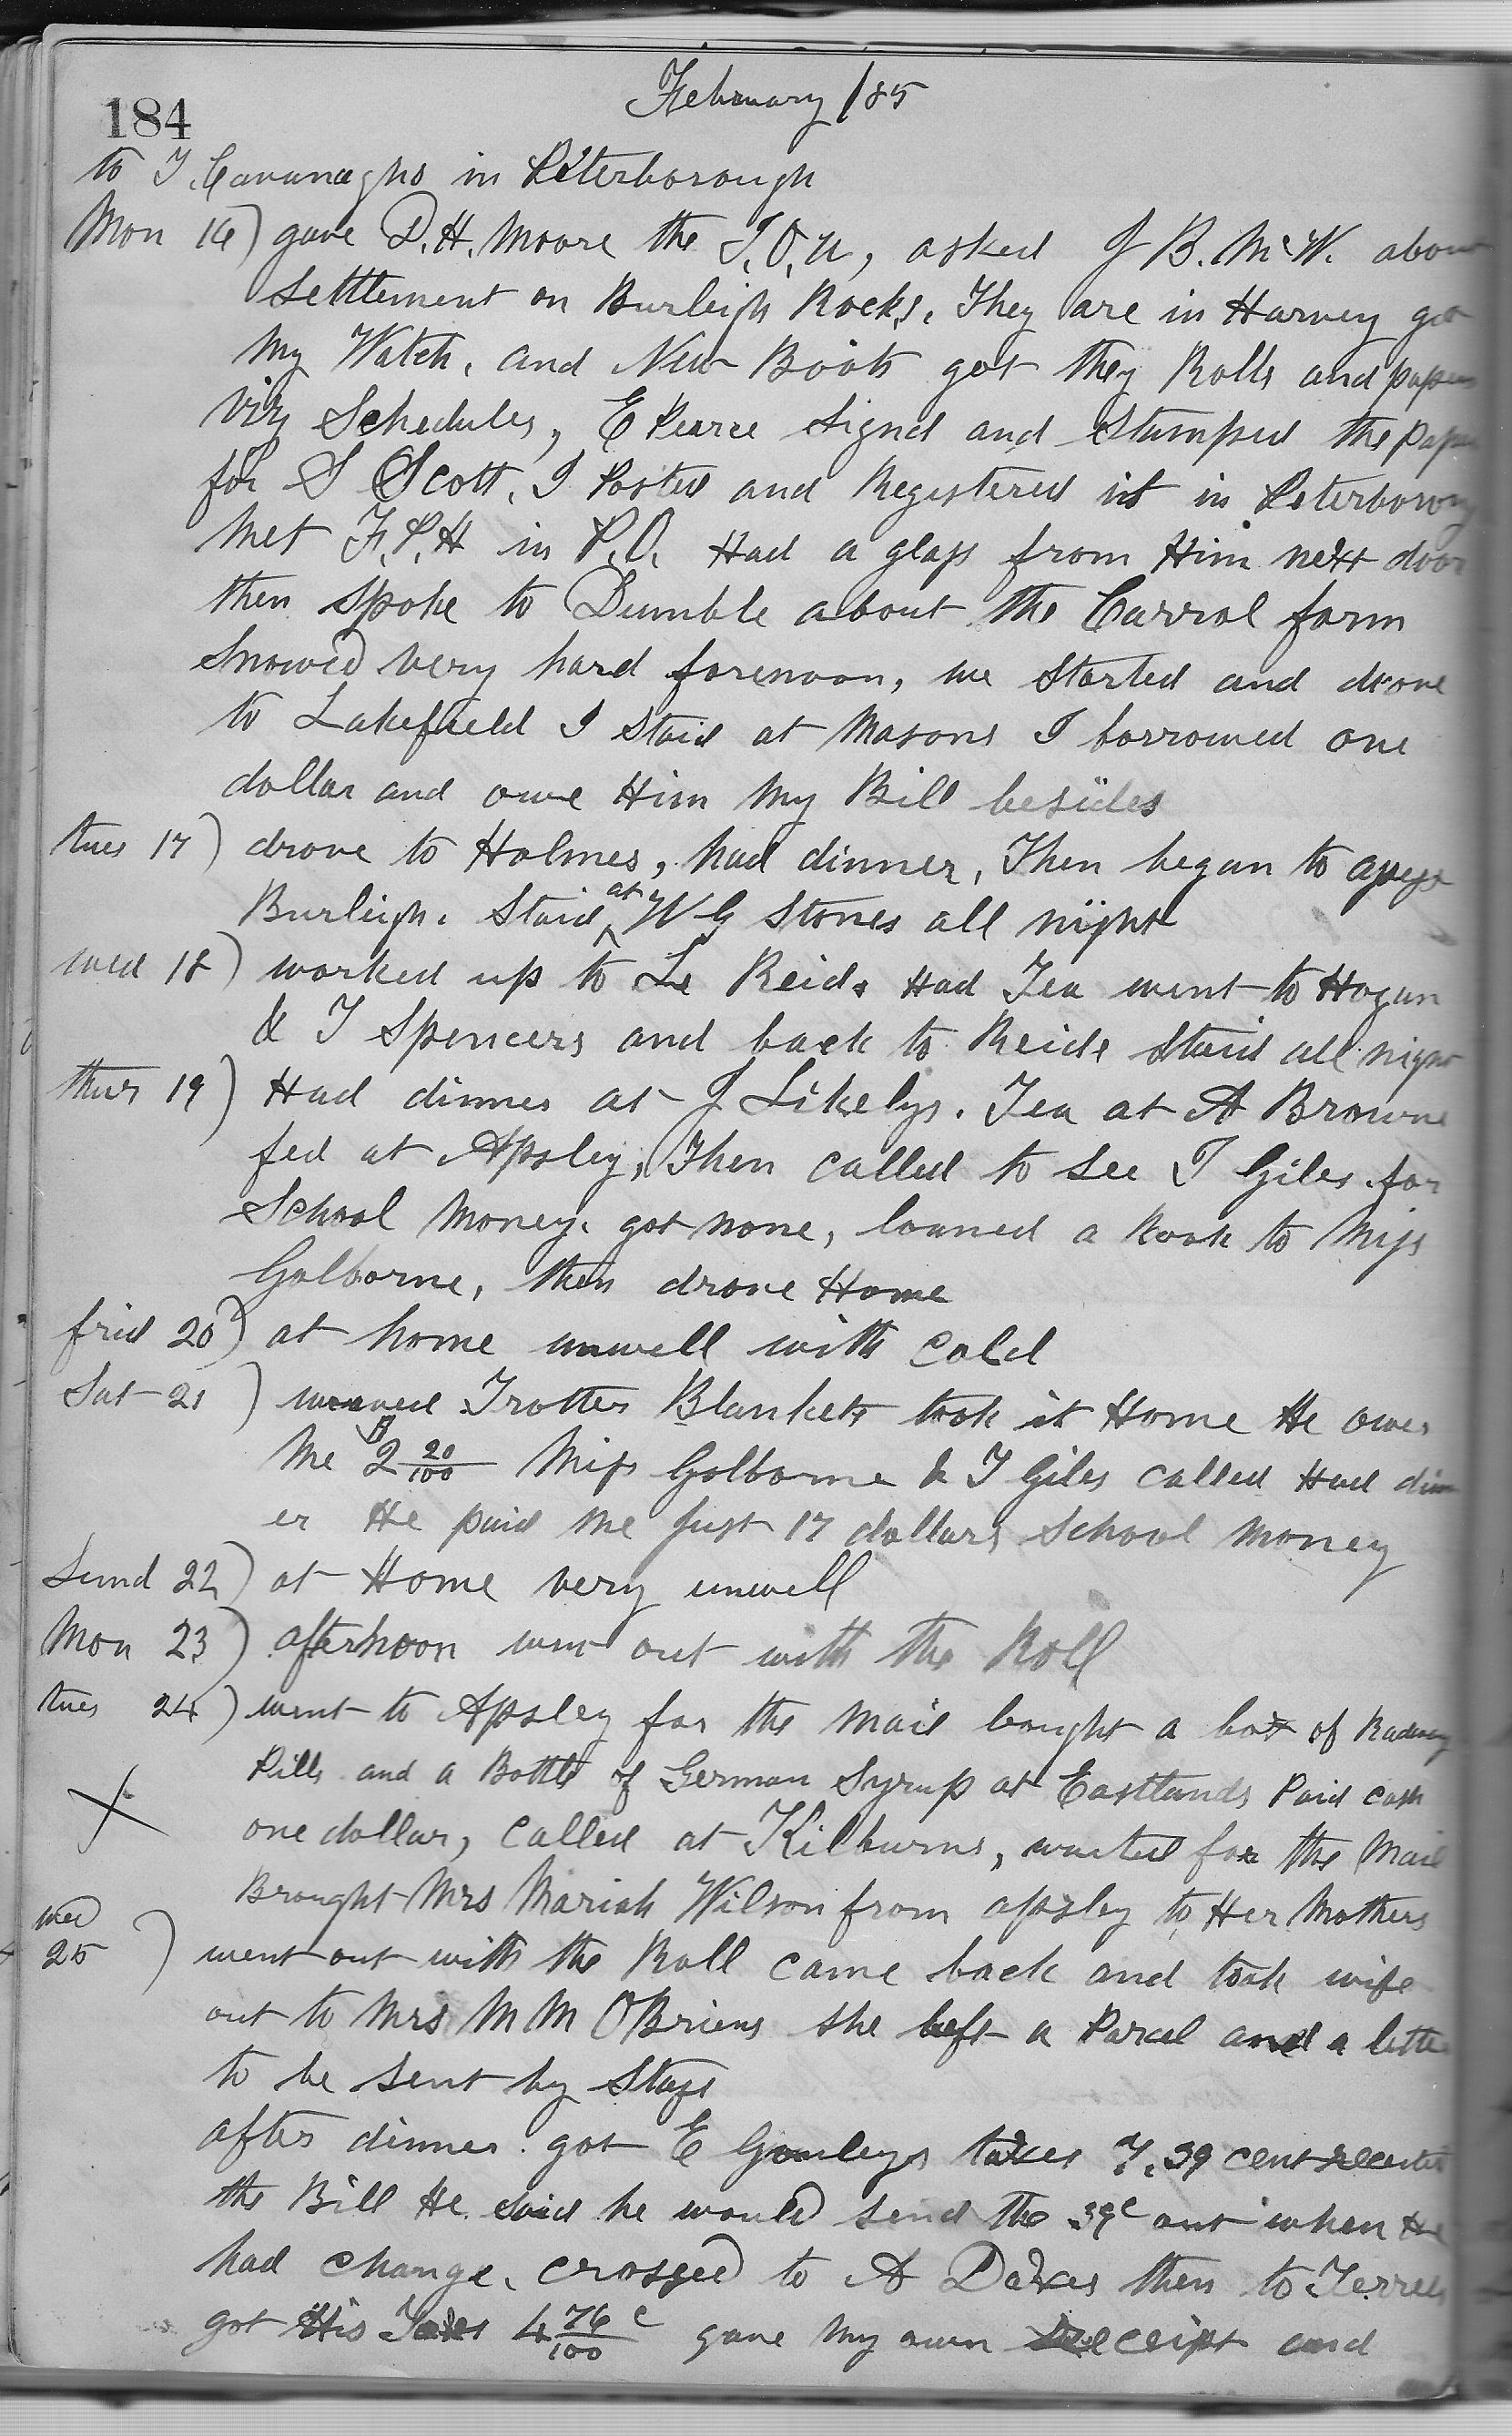 February /85
184
to T. Cavanaghs in Peterborough
Mon 16) gave D. H. Moore the I.O.U, asked J B. McW. about
Settlement on Burleigh Rocks. They are in Harvey got
my Watch. and New Boots got they Rolls and papers
viz Schedules, E Pearce Signd and Stamped the paper
for S Scott. I Posted and Registered it in Peterborough
Met F. P. H in P.O. Had a glass from Him next door
then spoke to Dumble about the Carrol farm
Snowed very hard forenoon, we Started and drove
to Lakefield I staid at Masons I borrowed one
dollar and owe Him My Bill besides
tues 17) drove to Holmes, had dinner, Then began to
Burleigh. Staid at W G Stones all night
wed 18) worked up to Reids Had Tea went to Hogan
& T Spencers and back to Reids Staid all night
thur 19) Had dinner at J Likelys. Tea at A Browns
fed at Apsley, Then called to see T Giles for
School Money. got none, loaned a Book to Miss
Golborne, then drove Home
frid 20) at home unwell with cold
Sat 21) weaved Trotter Blankets took it Home He owes
Me $ 2 20/100 Miss Golborne & T Giles called Had dinn
er He paid me just 17 dollars School Money
Sund 22) at Home very unwell
Mon 23) afterhoon went out with the Roll
tues 24) went to Apsley for the Mail bought a box of Radway
Pills and a Bottle of German Syrup at Eastlands Paid cash
one dollar, Called at Kilburns, waited for the Mail
Brought Mrs Mariah Wilson from apsley to Her Mothers
wed
25) went out with the Roll came back and took wife
out to Mrs M M OBriens she left a Parcel and a letter
to be sent by Stage
after dinner got E Gourleys taxes 7.39 cent
the Bill He said he would send the 39c out when He
had change. crossed to A then to Terrels
got His Taxes 4 76/100 c gave My own receipt and